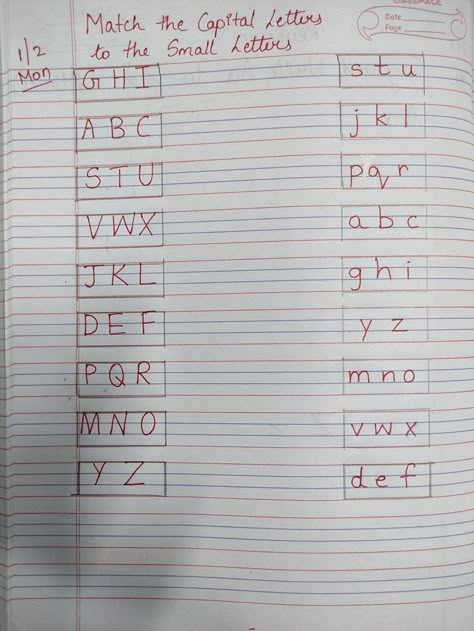 CLASSMATE
Date
Page
Match the Capital Letters
to the Small Letters
1/2
Mon
G H I s t u
A B C j k l
S T U p q r
V W X a b c
J K L g h i
D E F y z
P Q R m n o
M N O v w x
Y Z d e f